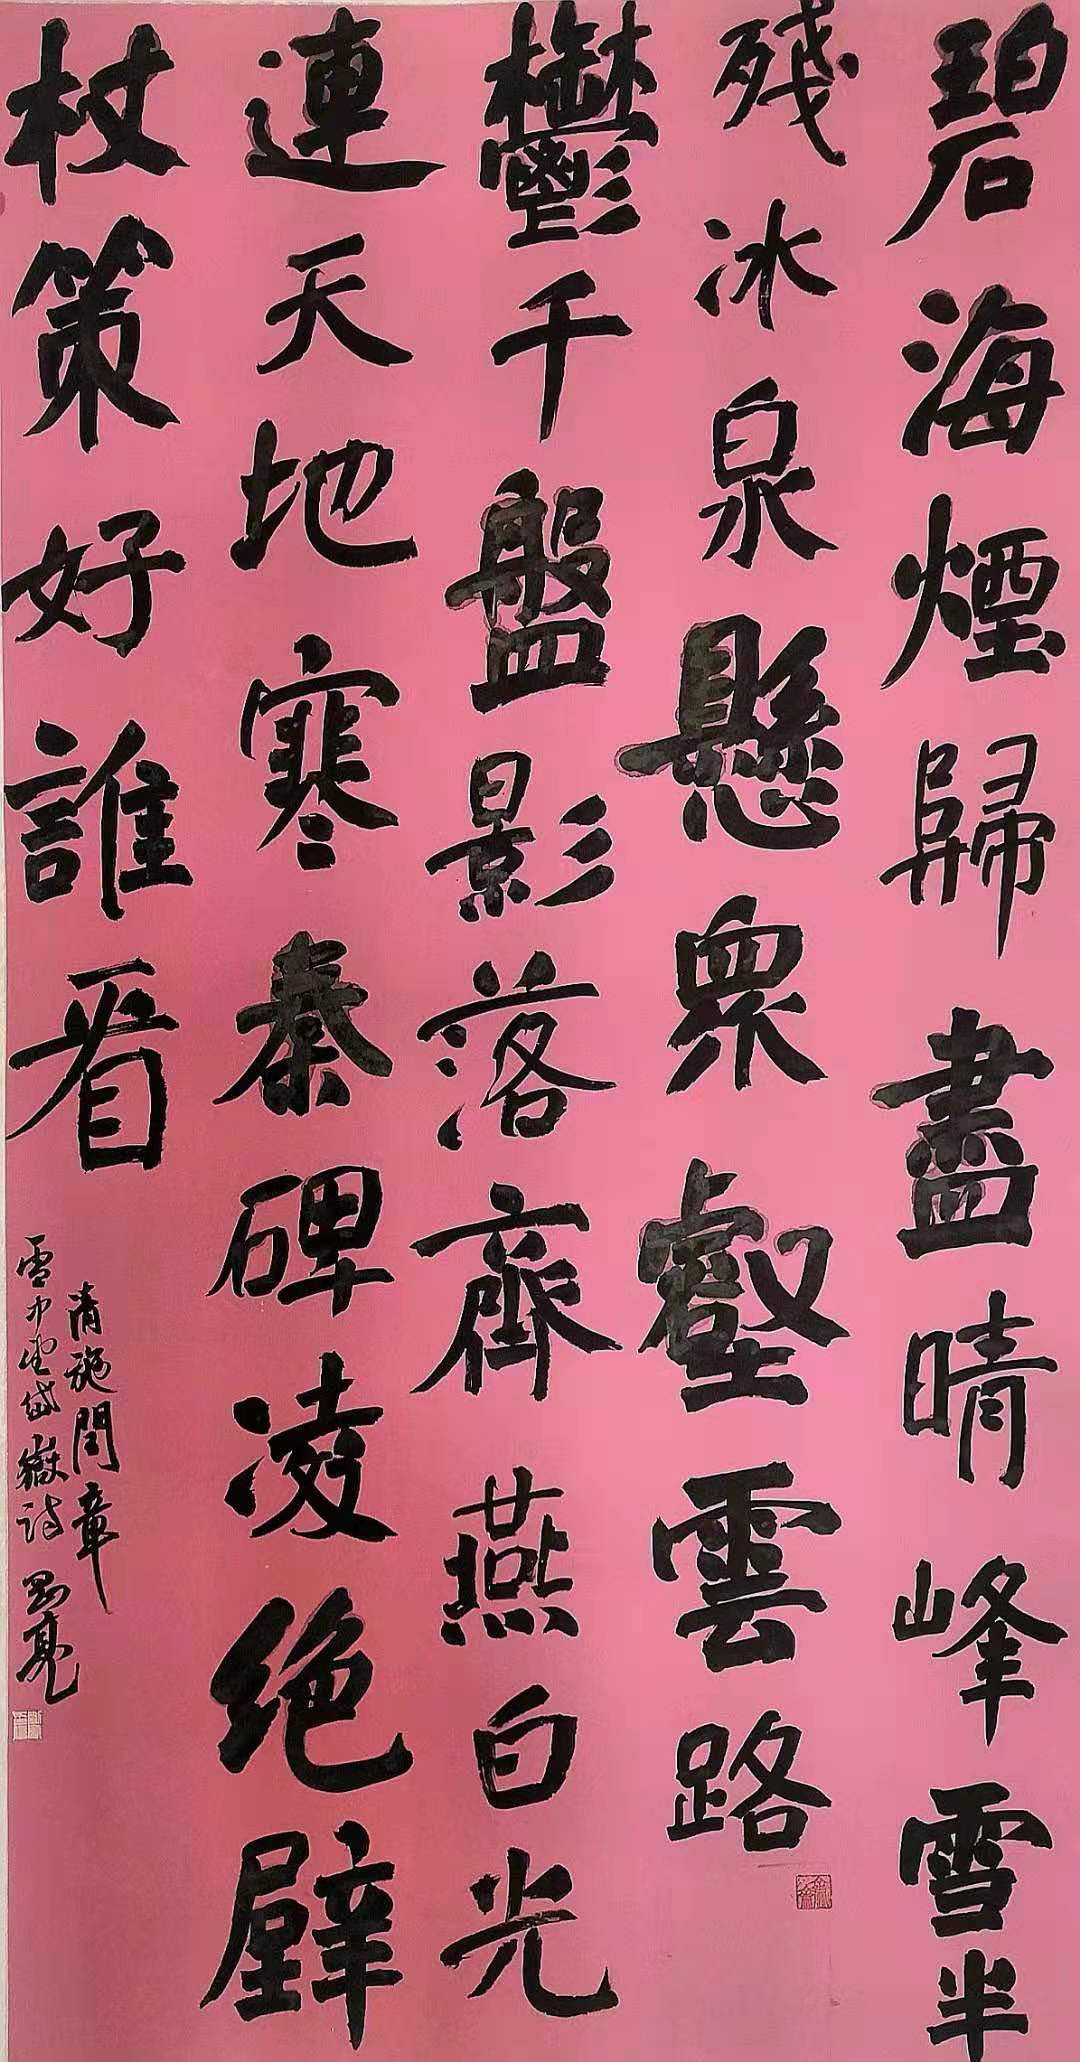 碧海煙歸盡晴峰雪半
殘冰泉懸眾壑雲路
鬱千盤影落齊燕白光
連天地寒秦碑凌绝壁
杖策好誰看
清施閏章
雪中望岱嶽诗